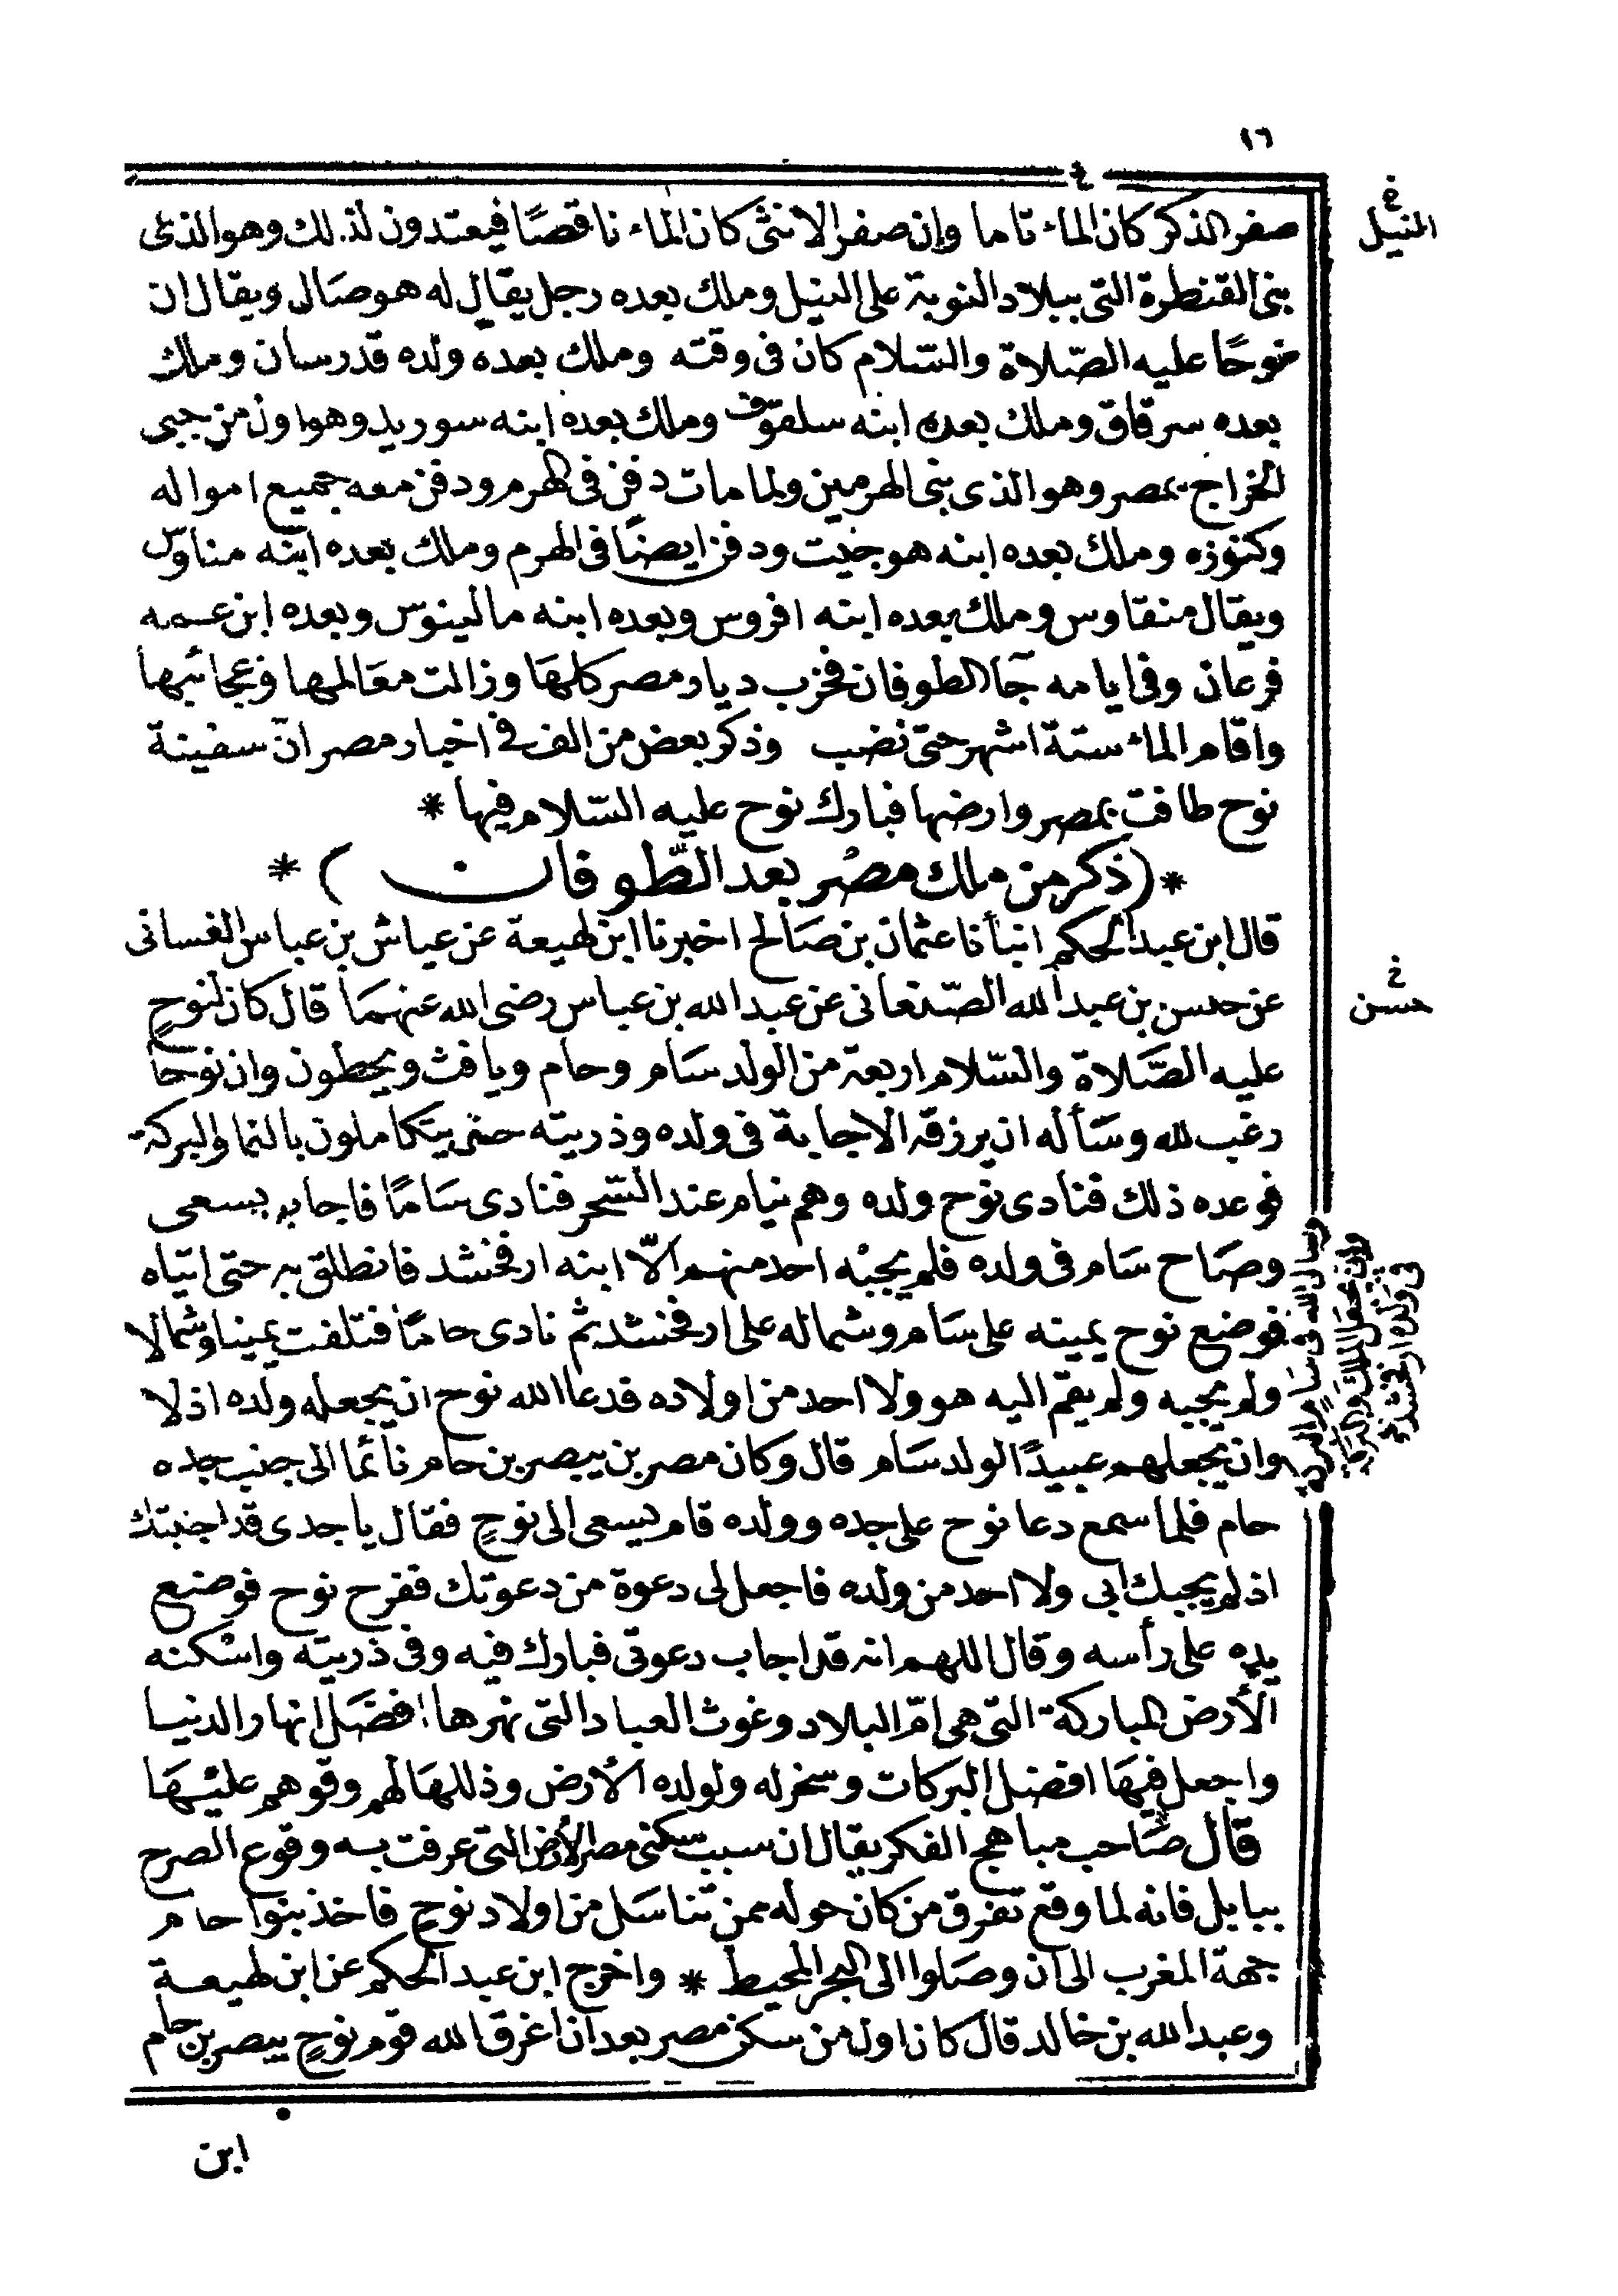 ١٦
صفر الذكر كان الماء تاما وإن صفر الانثى كان الماء ناقصًا فيعتدون لذلك وهو الذى
بنى القنطرة التى ببلاد النوبة على النيل وملك بعده رجل يقال له هوصال ويقال ان
نوحًا عليه الصّلاة والسّلام كان فى وقته وملك بعده ولده قدرسان وملك
بعده سرقاق وملك بعده ابنه سلقوف وملك بعده ابنه سوريد وهو اول من جبى
الخراج بمصر وهو الذى بنى الهرمين ولما مات دفن فى الهرم ودفن معه جميع امواله
وكنوزه وملك بعده ابنه هوجيت ودفن ايضًا فى الهرم وملك بعده ابنه مناوس
ويقال منقاوس وملك بعده ابنه افروس وبعده ابنه مالينوس وبعده ابن عمه
فرعان وفى ايامه جآ الطوفان فخرب ديار مصر كلها وزالت معالمها وعجائبها
واقام الماء ستة اشهر حتى نضب وذكر بعض من الف فى اخبار مصر انّ سفينة
نوح طافت بمصر وارضها فبارك نوح عليه السّلام فيها *
* (ذكر من ملك مصر بعد الطّوفان) *
قال ابن عبد الحكم انبأنا عثمان بن صالح اخبرنا ابن لهيعة عن عياش بن عباس الغسانى
عن حنسن بن عبد الله الصّنعانى عن عبد الله بن عباس رضى الله عنهما قال كان لنوحٍ
عليه الصّلاة والسّلام اربعة من الولد سام وحام ويافث ويحطون وان نوحًا
رغب لله وسأله ان يرزقه الاجابة فى ولده وذريته حتى يتكاملون بالنما والبركة
فوعده ذلك فنادى نوح ولده وهم نيام عند السّحر فنادى سامًا فاجابه يسعى
وصاح سام فى ولده فلم يجبه احد منهم الّا ابنه ارفخشد فانطلق به حتى اتياه
فوضع نوح يمينه على سام وشماله على ارفخشد ثم نادى حامًا فتلفت يمينا وشمالا
ولم يجبه ولم يقم اليه هو ولا احد من اولاده فدعا الله نوح ان يجعل ولده اذلا
وان يجعلهم عبيدًا لولد سام قال وكان مصر بن بيصر بن حام نائما الى جنب جده
حام فلما سمع دعا نوح على جده وولده قام يسعى الى نوحٍ فقال يا جدى قد اجبتك
اذ لم يجبك ابى ولا احد من ولده فاجعل لى دعوة من دعوتك ففرح نوح فوضع
يده على رأسه وقال اللهم انه قد اجاب دعوتى فبارك فيه وفى ذريته واسكنه
الأرض المباركة التى هى امّ البلاد وغوث العباد التى نهرها افضل انهار الدنيا
واجعل فيها افضل البركات وسخر له ولولده الأرض وذللها لهم وقوهم عليها
قال صاحب مباهج الفكر يقال ان سبب سكنى مصر الأرض التى عرفت به وقوع الصرح
ببابل فانه لما وقع تفرق من كان حوله ممن تناسل من اولاد نوحٍ فاخذ بنوا حام
جهة المغرب الى ان وصلوا الى البحر المحيط * واخرج ابن عبد الحكم عن ابن لهيعة
وعبد الله بن خالد قال كان اول من سكن مصر بعد ان اغرق الله قوم نوحٍ بيصر بن حام
ابن
خ
المنيل
خ
حسن
وسال الله فى سام البركة
وان يجعل الملك والنبوة
فى ولد ارفخشد